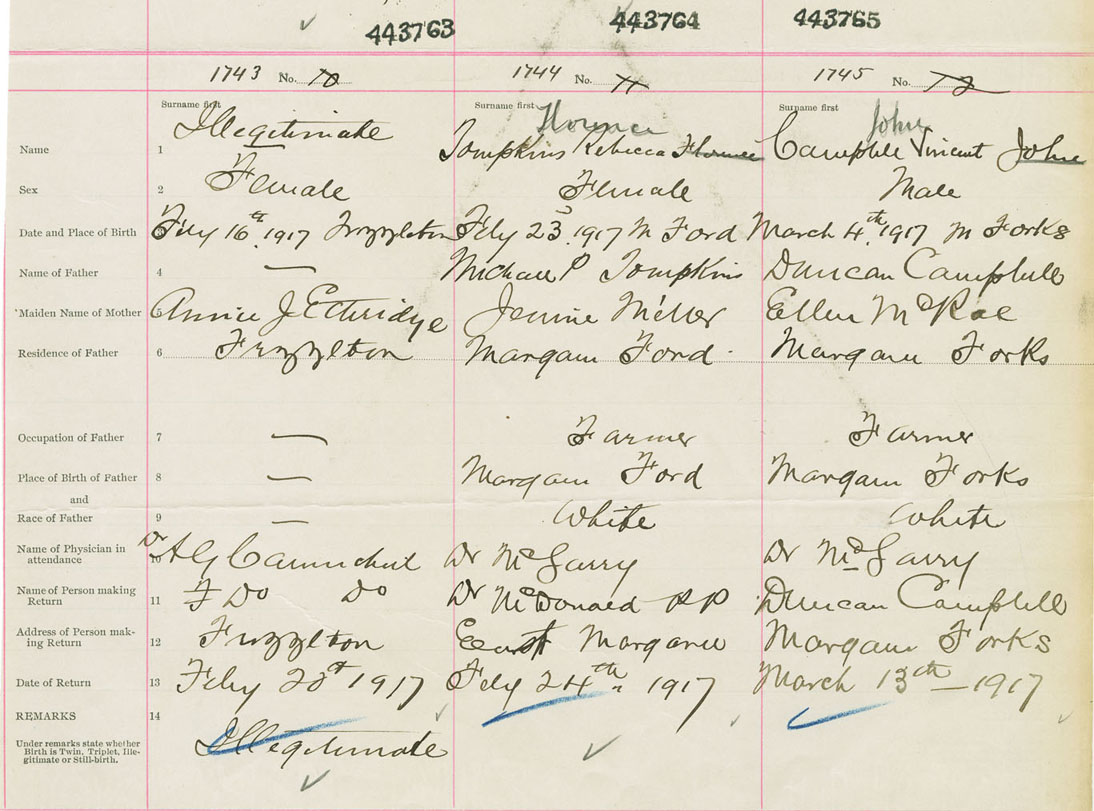 443763 443764 443765
1743 No. 10 1744 No. 11 1745 No. 12
Surname first Surname first Florence Surname first John
Name 1 Illegitimate Tompkins Rebecca Florence Campbell Vincent John
Sex 2 Female Female Male
Date and Place of Birth 3 Feby 16th 1917 Frizzleton Feby 23 1917 M Ford March 4th 1917 M Forks
Name of Father 4 — Michael P Tompkins Duncan Campbell
Maiden Name of Mother 5 Annie J Ethridge Jennie Miller Ellen McRae
Residence of Father 6 Frizzleton Margaree Ford Margaree Forks
Occupation of Father 7 — Farmer Farmer
Place of Birth of Father 8 — Margaree Ford Margaree Forks
and
Race of Father 9 — White White
Name of Physician in
attendance 10 Dr A G Dr McGarry Dr McGarry
Name of Person making
Return 11 Do Do Dr McDonald P P Duncan Campbell
Address of Person mak-
ing Return 12 Frizzleton East Margaree Margaree Forks
Date of Return 13 Feby 1917 Feby 24th 1917 March 13th — 1917
REMARKS 14
Under remarks state whether
Birth is Twin, Triplet, Ille-
gitimate or Still-birth.
Illegitimate